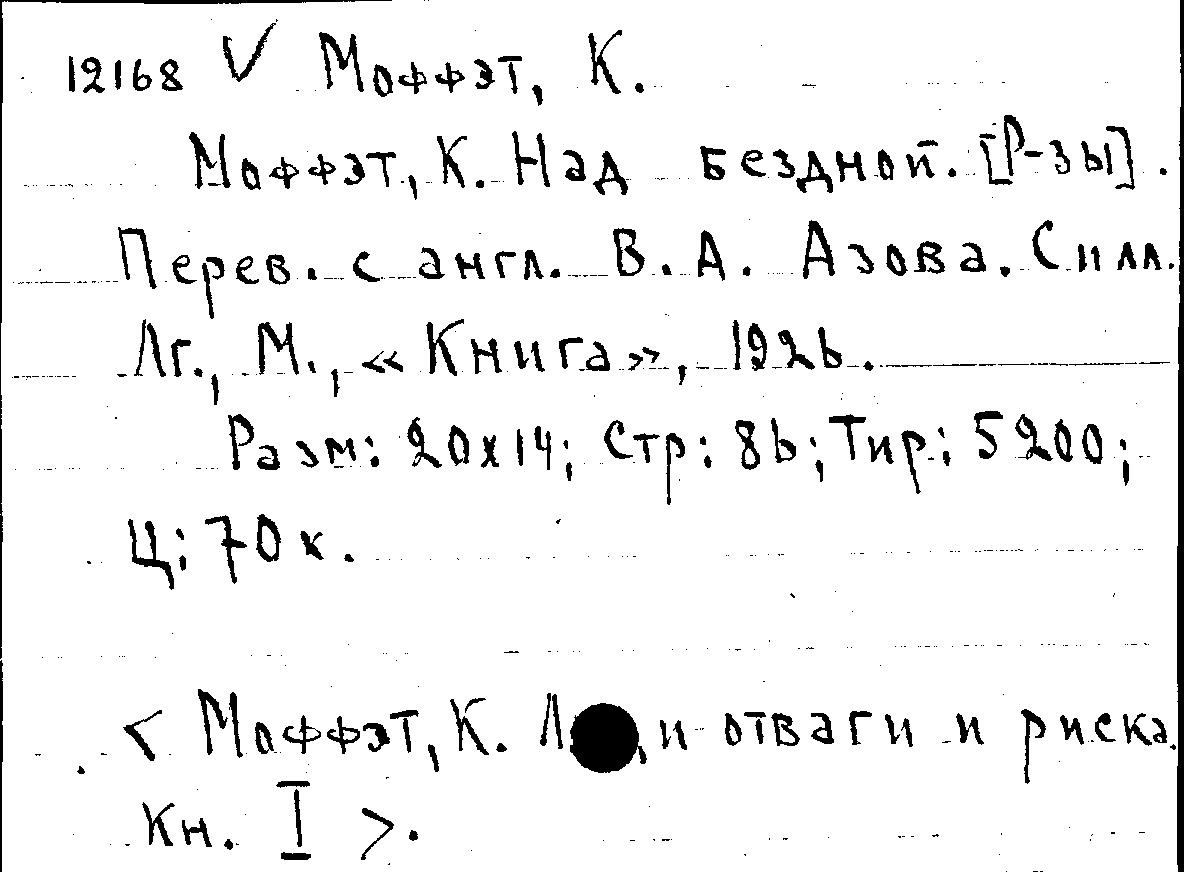 12168 V Моффэт, К.
Моффэт, К. Над бездной. [Р-зы].
Перев. с англ. В. А. Азова. С илл.
Лг., М., «Книга», 1926.
Разм: 20х14; Стр: 86; Тир: 5200;
Ц: 70 к.
< Моффэт, К. отваги и риска.
Кн. I >.